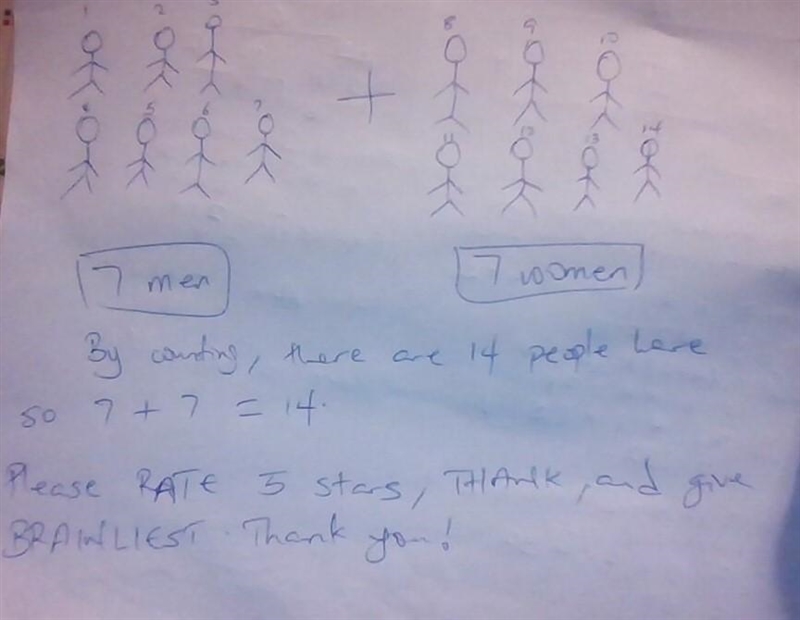 1 2 3
8 9 10
+
4 5 6 7
11 12 13 14
7 men
7 women
By counting, there are 14 people here
so 7 + 7 = 14.
Please RATE 5 stars, THANK, and give
BRAINLIEST. Thank you!